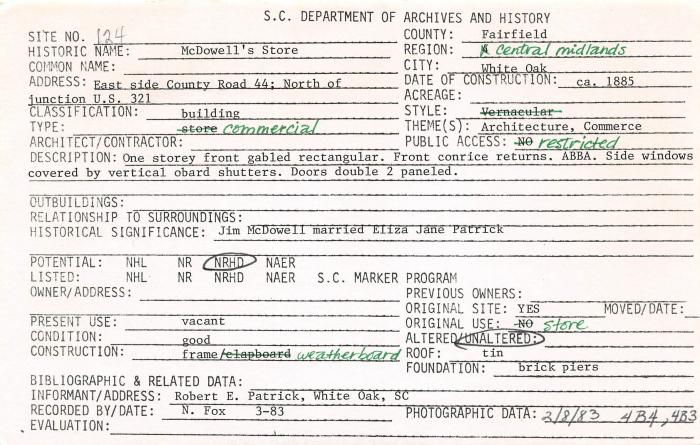 S.C. DEPARTMENT OF ARCHIVES AND HISTORY
SITE NO. 124
COUNTY: Fairfield
HISTORIC NAME: McDowell's Store
REGION: 4 central midlands
COMMON NAME:
CITY: White Oak
ADDRESS: East side County Road 44; North of
DATE OF CONSTRUCTION: ca. 1885
junction U.S. 321
ACREAGE:
CLASSIFICATION: building
STYLE: Vernacular
TYPE: store commercial
THEME(S): Architecture, Commerce
ARCHITECT/CONTRACTOR:
PUBLIC ACCESS: NO restricted
DESCRIPTION: One storey front gabled rectangular. Front conrice returns. ABBA. Side windows
covered by vertical obard shutters. Doors double 2 paneled.
OUTBUILDINGS:
RELATIONSHIP TO SURROUNDINGS:
HISTORICAL SIGNIFICANCE: Jim McDowell married Eliza Jane Patrick
POTENTIAL: NHL NR NRHD NAER
LISTED: NHL NR NRHD NAER S.C. MARKER PROGRAM
OWNER/ADDRESS:
PREVIOUS OWNERS:
ORIGINAL SITE: YES MOVED/DATE:
PRESENT USE: vacant
ORIGINAL USE: NO store
CONDITION: good
ALTERED/UNALTERED:
CONSTRUCTION: frame/clapboard weatherboard
ROOF: tin
FOUNDATION: brick piers
BIBLIOGRAPHIC & RELATED DATA:
INFORMANT/ADDRESS: Robert E. Patrick, White Oak, SC
RECORDED BY/DATE: N. Fox 3-83
PHOTOGRAPHIC DATA: 2/8/83 4B4, 4B3
EVALUATION: